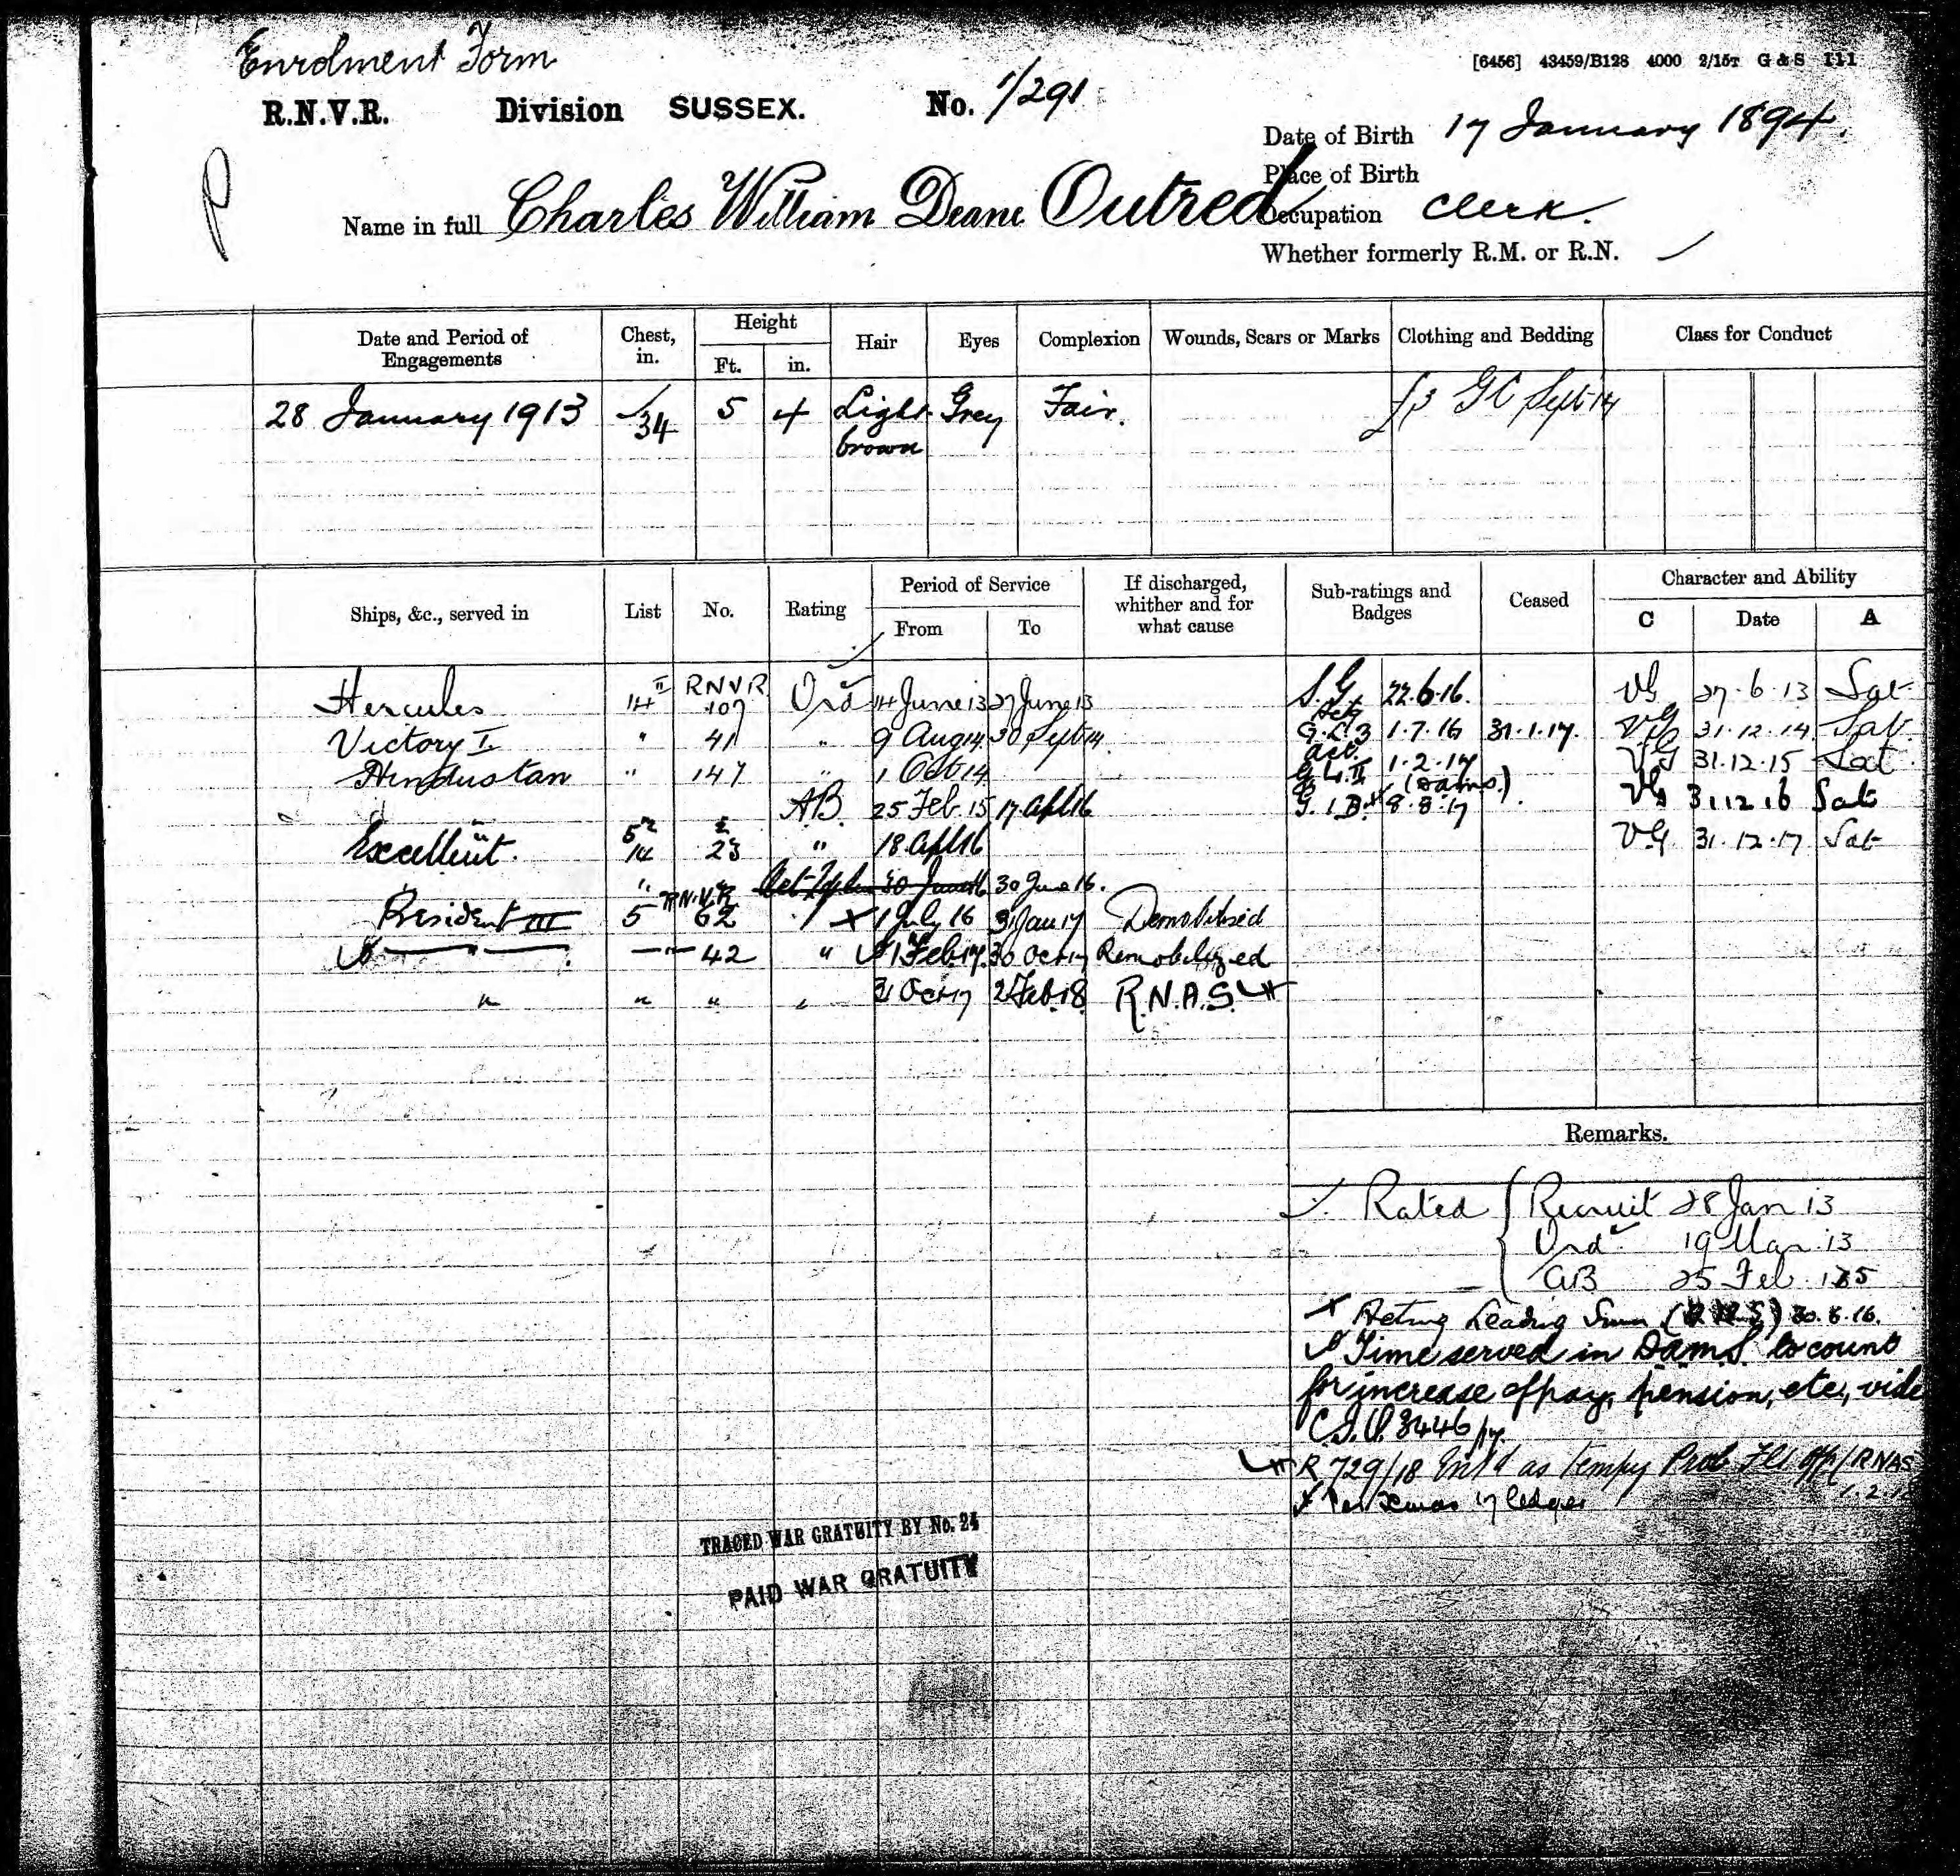 Enrolment Form
[6456] 43459/B128 4000 2/15T G & S 111
R.N.V.R. Division SUSSEX. No. 1/291
Date of Birth 17 January 1894.
Place of Birth
Name in full Charles William Deane Outred
Occupation Clerk.
Whether formerly R.M. or R.N.
Date and Period of Engagements Chest, in. Height Ft. in. Hair Eyes Complexion Wounds, Scars or Marks Clothing and Bedding Class for Conduct
28 January 1913 34 5 4 Light brown Grey Fair. £3 GC Sept 14
Ships, &c., served in List No. Rating Period of Service From To If discharged, whither and for what cause Sub-ratings and Badges Ceased Character and Ability C Date A
Hercules 14 II RNVR 107 Ord 14 June 13 27 June 13 S.G. 22.6.16. VG 27.6.13 Sat.
Victory I " 41 " 9 Aug 14 30 Sept 14 G.L.3 1.7.16 31.1.17. VG 31.12.14 Sat.
Hindustan " 147 " 1 Oct 14 G.L.II 1.2.17 (Dams) VG 31.12.15 Sat.
A.B. 25 Feb. 15 17 Apl 16 8.8.17 VG 31.12.16 Sat
Excellent. 14 23 " 18 Apl 16 VG 31.12.17 Sat
" 30 June 16 30 June 16.
President III 5 R.N.V.R. 62 1 July 16 31 Jan 17 Demobilised
" 42 " 1 Feb. 17. 30 Oct 17 Remobilized
" " " " 31 Oct 17 2 Feb. 18. R.N.A.S.
Remarks.
Rated Recruit 28 Jan 13
Ord 19 Mar. 13
AB 25 Feb. 15
x Acting Leading Smn 30.6.16.
Time served in D.A.M.S. to count
for increase of pay, pension, etc., vide
8446/17.
R 729/18 Ent'd as Tempy Prob Flt Offr (RNAS
1.2.1
ledger
TRACED WAR GRATUITY BY No. 24
PAID WAR GRATUITY